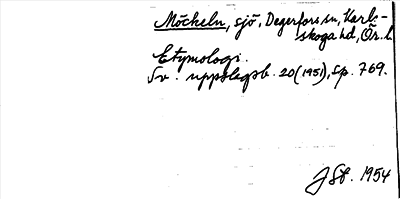 Möckeln, sjö, Degerfors sn, Karl-
skoga hd, Ör. l.
Etymologi.
Sv. uppslagsb. 20 (1951), sp. 769.
JSt. 1954